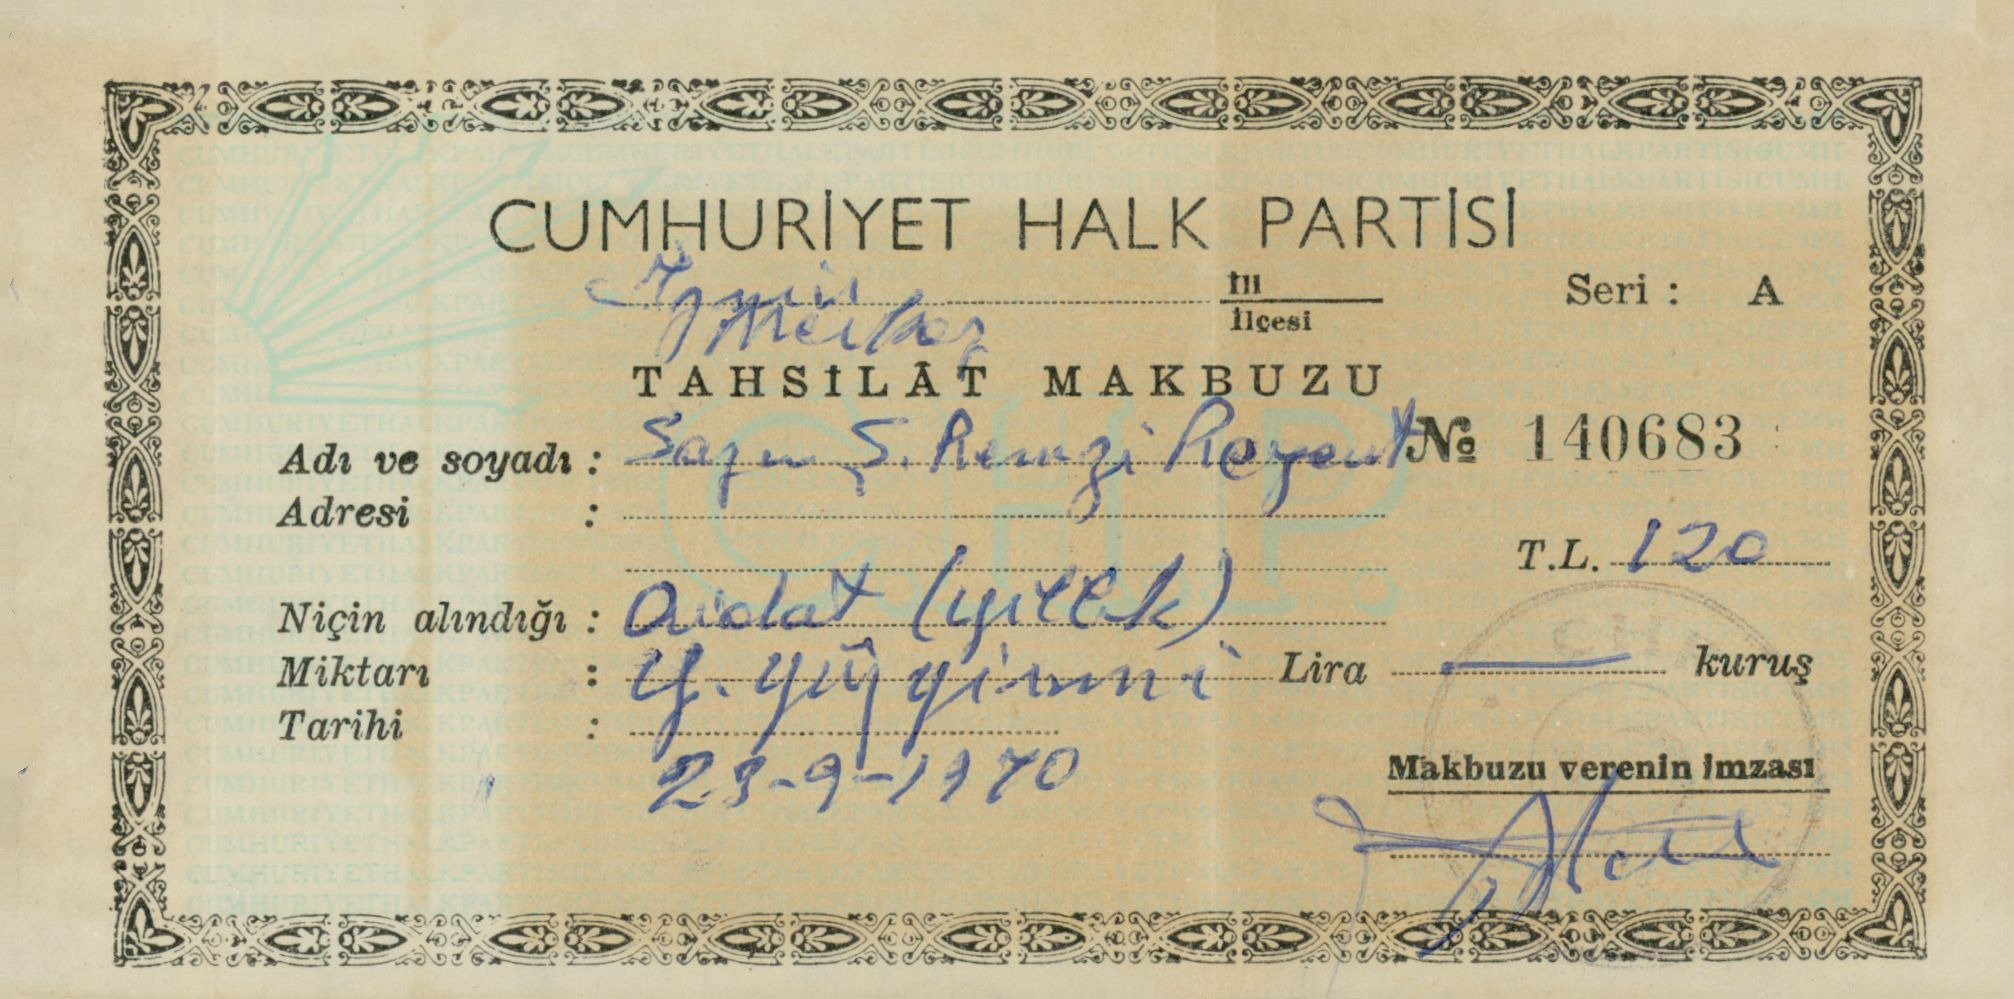 CUMHURİYET HALK PARTİSİ
İzmir İli
Merkez İlçesi
Seri : A
TAHSİLÂT MAKBUZU
№ 140683
Adı ve soyadı : Sayın Ş. Remzi Reyent
Adresi :
T.L. 120
Niçin alındığı : Aidat (yıllık)
Miktarı : Y. yüzyirmi Lira — kuruş
Tarihi :
23-9-1970
Makbuzu verenin imzası
C.H.P.